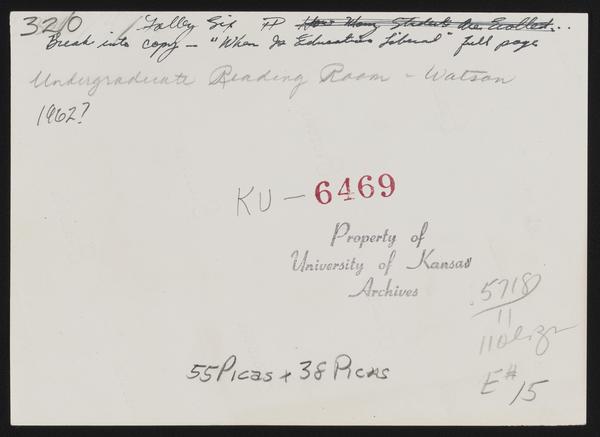 320 Folley Six FP How Many Students Are Enrolled...
Break into copy - "When Is Education Liberal" full page
Undergraduate Reading Room - Watson
1962?
KU - 6469
Property of
University of Kansas
Archives
.5718
11
110
55Picas x 38 Picas
E# 15